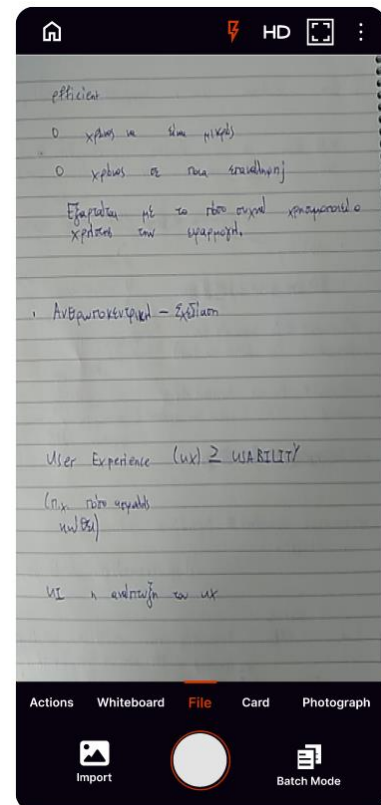 HD
efficient
Ο χρόνος να είναι μικρός
Ο χρόνος σε ποια επανάληψη
Εξαρτάται με το πόσο συχνά χρησιμοποιεί ο
χρήστης την εφαρμογή.
Ανθρωποκεντρική - Σχεδίαση
User Experience (UX) ≥ USABILITY
(π.χ. πόσο
UI η ανάπτυξη του UX
Actions Whiteboard File Card Photograph
Import Batch Mode